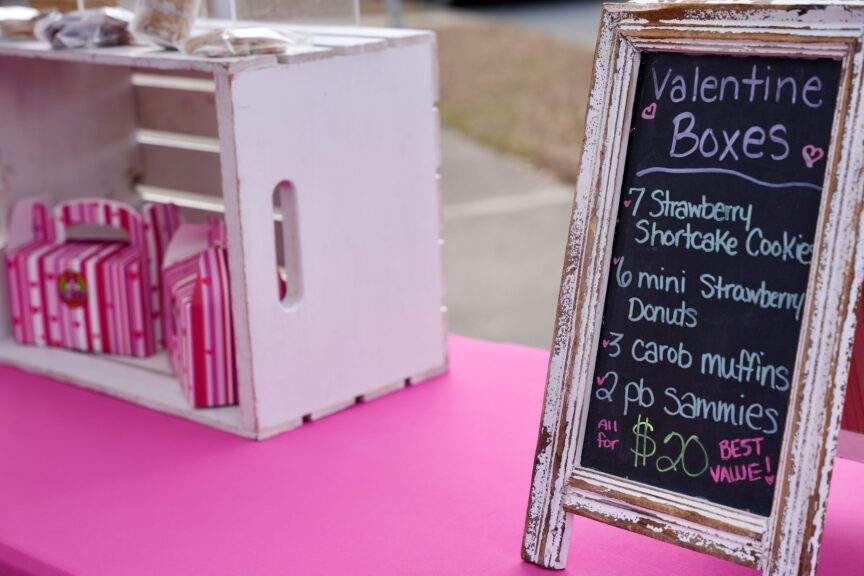 Valentine
Boxes
7 Strawberry
Shortcake Cookies
6 mini Strawberry
Donuts
3 carob muffins
2 pb sammies
All for $20 BEST VALUE!